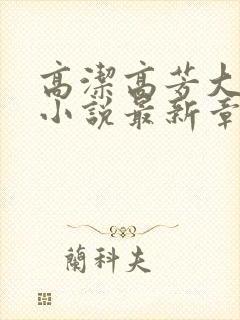 高潔高芳大
小說最新章
蘭科夫